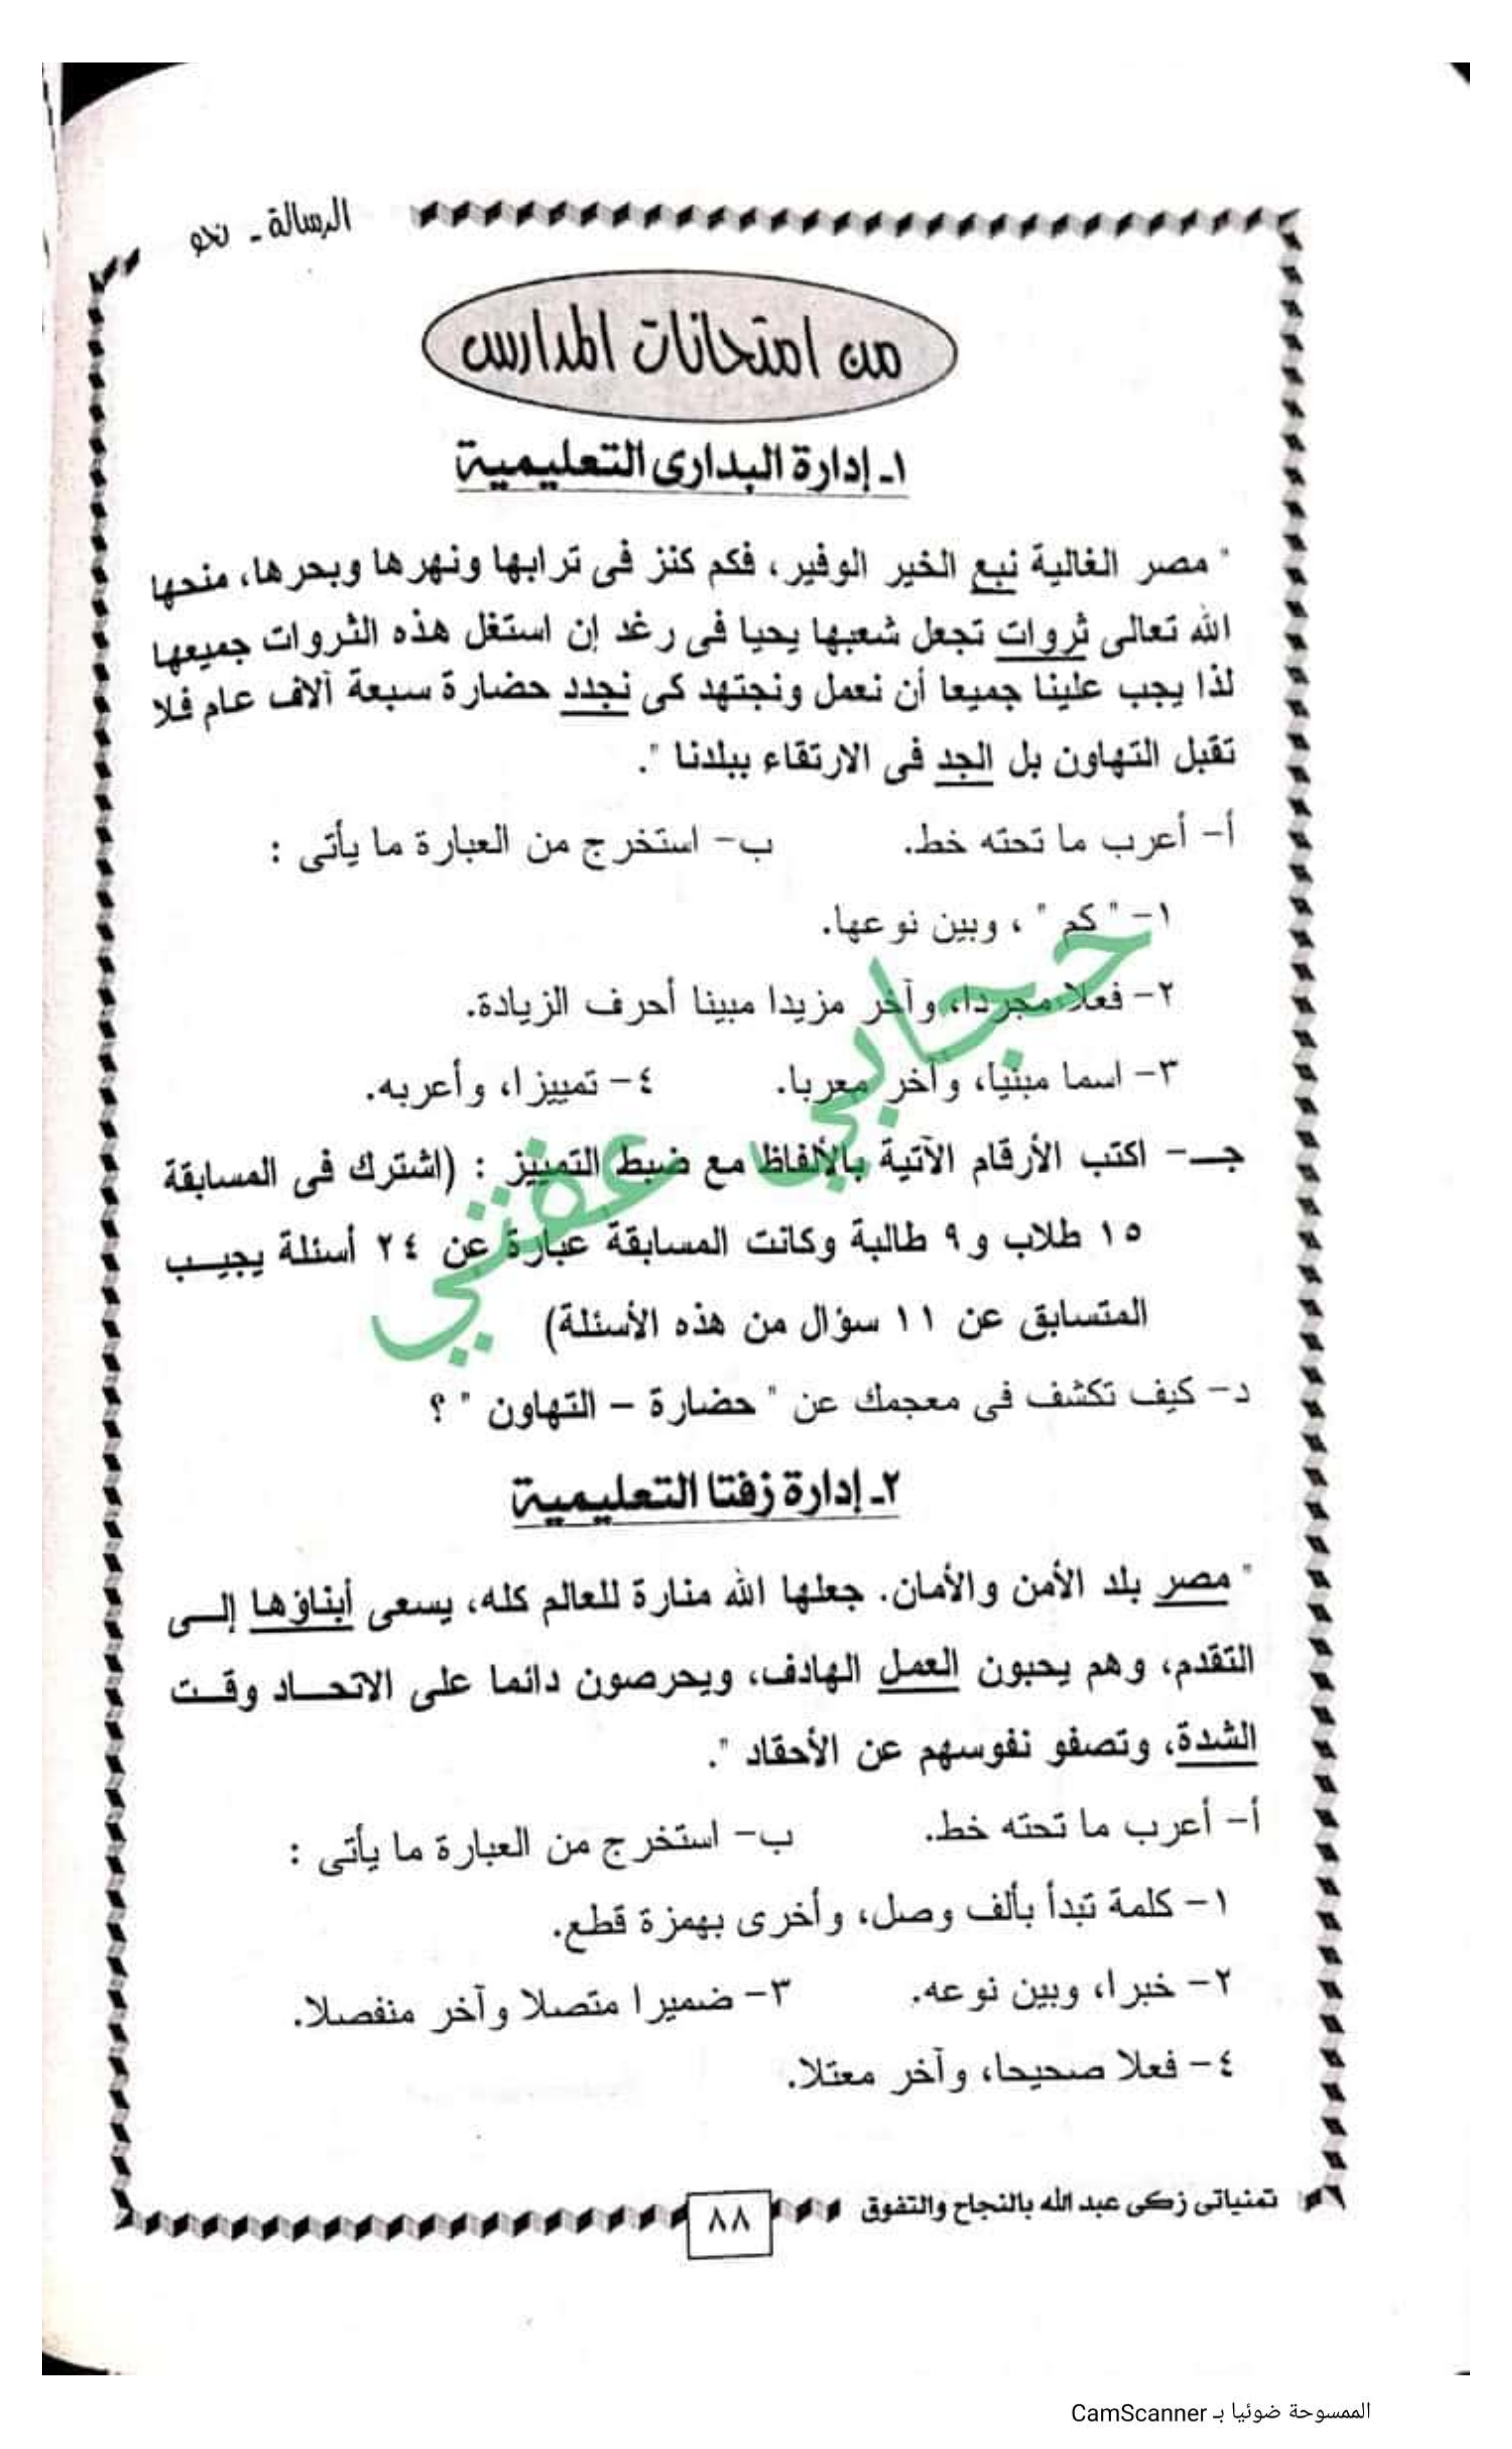 الرسالة ـ نحو
من امتحانات المدارس
١ـ إدارة البدارى التعليمية
" مصر الغالية نبع الخير الوفير، فكم كنز فى ترابها ونهرها وبحرها، منحها
الله تعالى ثروات تجعل شعبها يحيا فى رغد إن استغل هذه الثروات جميعها
لذا يجب علينا جميعا أن نعمل ونجتهد كى نجدد حضارة سبعة آلاف عام فلا
تقبل التهاون بل الجد فى الارتقاء ببلدنا ".
أ- أعرب ما تحته خط. ب- استخرج من العبارة ما يأتى :
١- " كم " ، وبين نوعها.
٢- فعلا مجردا، وآخر مزيدا مبينا أحرف الزيادة.
٣- اسما مبنيا، وآخر معربا. ٤- تمييزا، وأعربه.
جـ- اكتب الأرقام الآتية بالألفاظ مع ضبط التمييز : (اشترك فى المسابقة
١٥ طلاب و٩ طالبة وكانت المسابقة عبارة عن ٢٤ أسئلة يجيب
المتسابق عن ١١ سؤال من هذه الأسئلة)
حجابي عفتي
د- كيف تكشف فى معجمك عن " حضارة – التهاون " ؟
٢ـ إدارة زفتا التعليمية
" مصر بلد الأمن والأمان. جعلها الله منارة للعالم كله، يسعى أبناؤها إلى
التقدم، وهم يحبون العمل الهادف، ويحرصون دائما على الاتحاد وقت
الشدة، وتصفو نفوسهم عن الأحقاد ".
أ- أعرب ما تحته خط. ب- استخرج من العبارة ما يأتى :
١- كلمة تبدأ بألف وصل، وأخرى بهمزة قطع.
٢- خبرا، وبين نوعه. ٣- ضميرا متصلا وآخر منفصلا.
٤- فعلا صحيحا، وآخر معتلا.
تمنياتى زكى عبد الله بالنجاح والتفوق
٨٨
الممسوحة ضوئيا بـ CamScanner